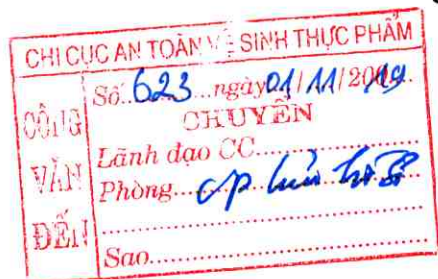 CHI CỤC AN TOÀN VỆ SINH THỰC PHẨM
CÔNG VĂN ĐẾN
Số 623 ngày 01/11/2019
CHUYỂN
Lãnh đạo CC
Phòng
Sao